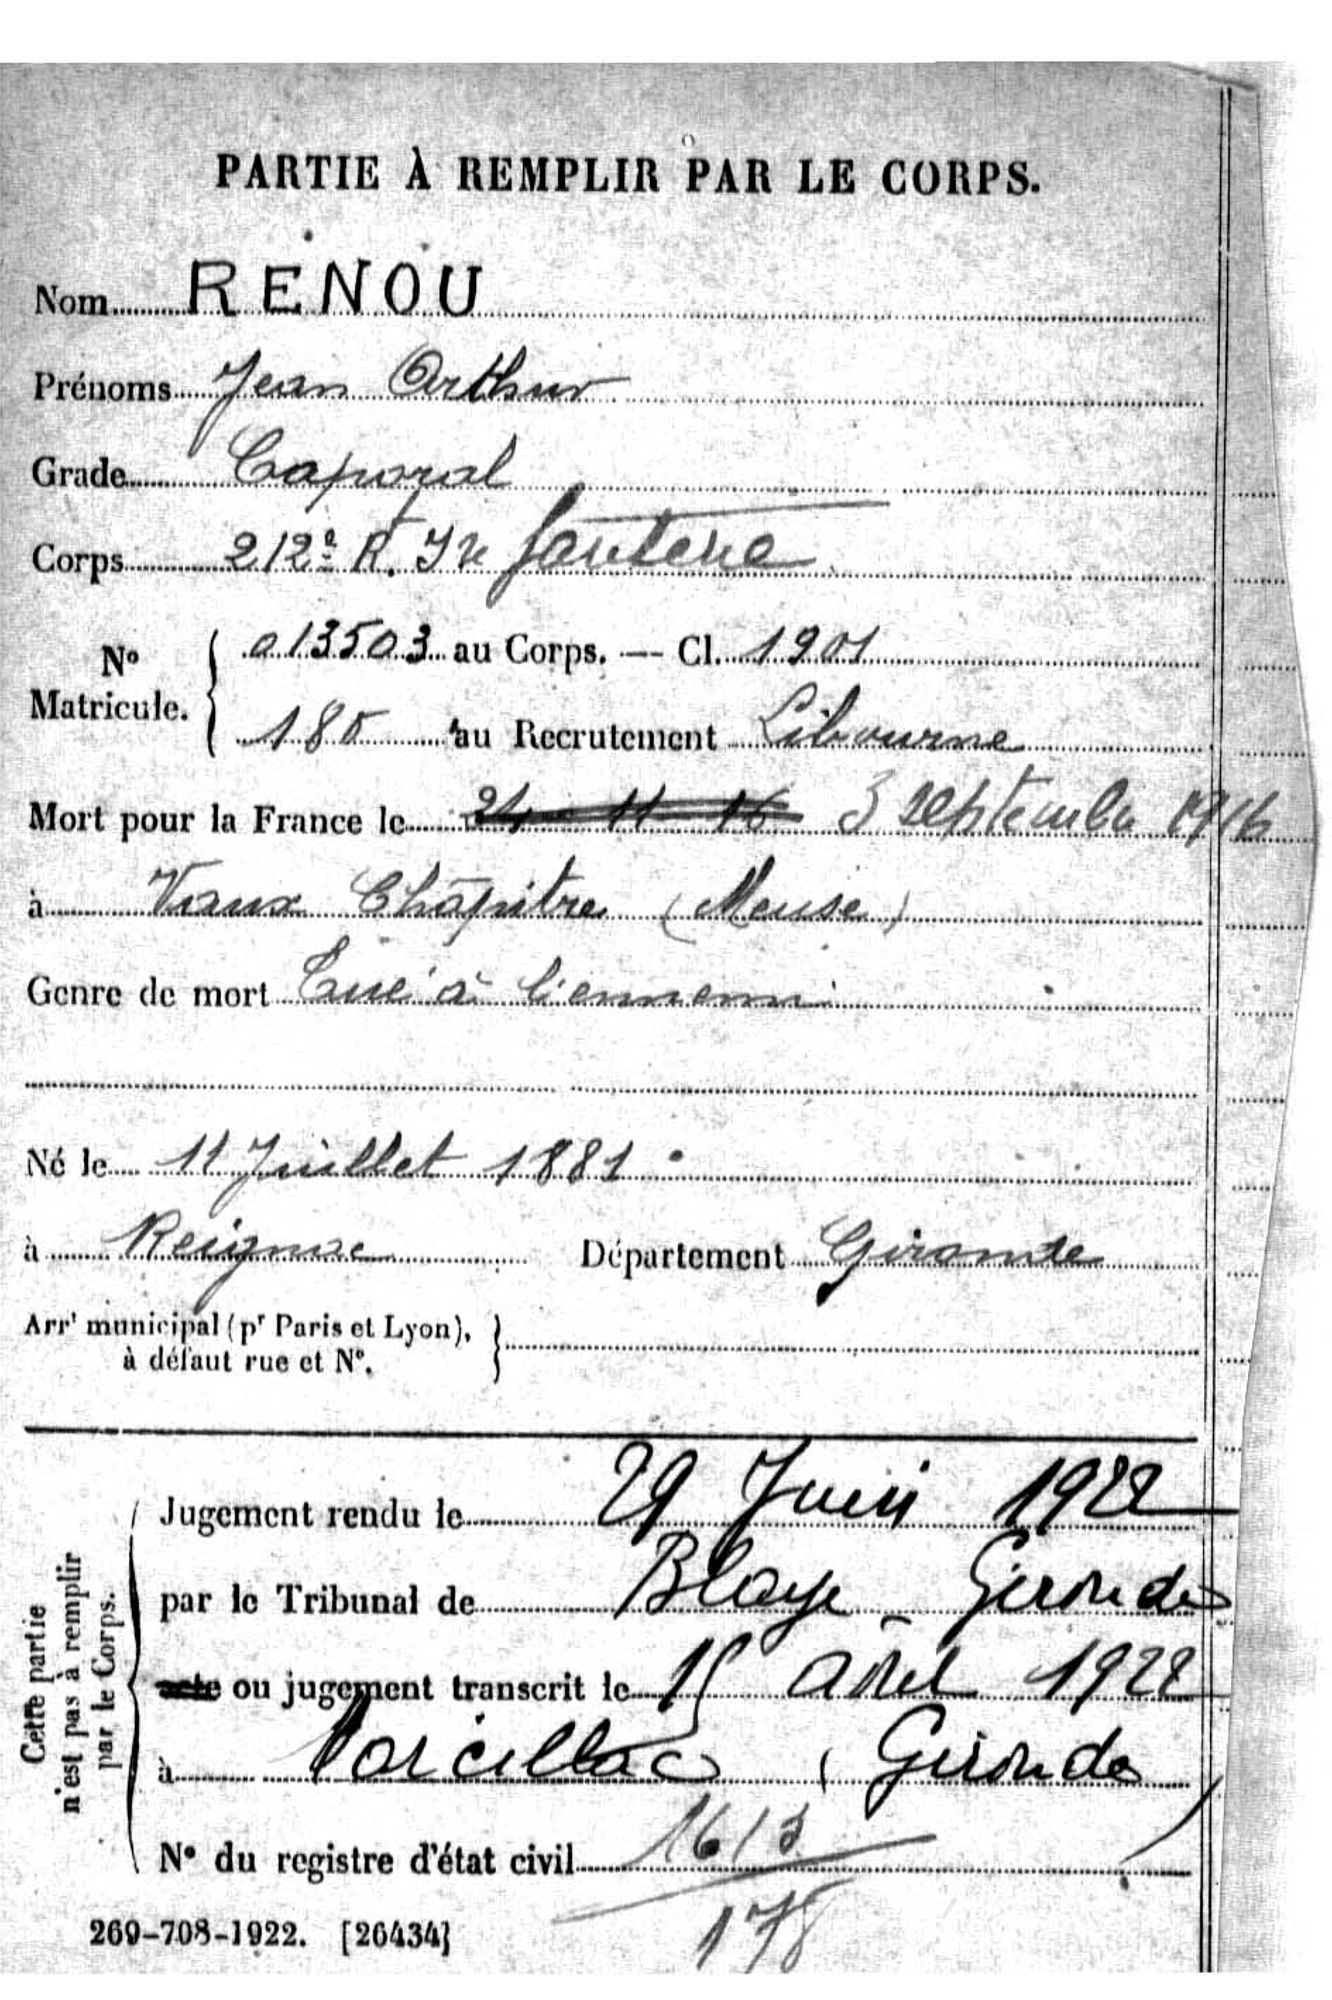 PARTIE À REMPLIR PAR LE CORPS.
Nom RENOU
Prénoms Jean Arthur
Grade Caporal
Corps 212e R. Infanterie
N° Matricule. 013503 au Corps. — Cl. 1901
180 au Recrutement Libourne
Mort pour la France le 24 11 16 3 septembre 1916
à Vaux Chapitre (Meuse)
Genre de mort Tué à l'ennemi
Né le 11 Juillet 1881
à Reignac Département Gironde
Arrt municipal (pr Paris et Lyon),
à défaut rue et N°.
Cette partie
n'est pas à remplir
par le Corps.
Jugement rendu le 29 Juin 1922
par le Tribunal de Blaye Gironde
acte ou jugement transcrit le 15 1922
à Marcillac (Gironde)
N° du registre d'état civil
178
269-708-1922. [26434]